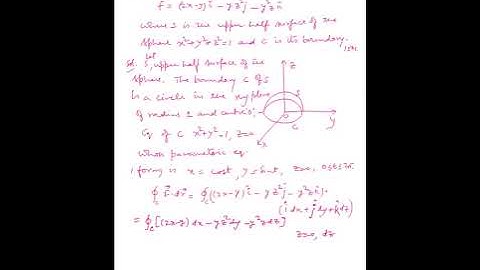 F = (2x-y) î - y z² ĵ - y² z k̂
where S is the upper half surface of the
sphere x²+y²+z²=1 and C is its boundary.
Sol. Let S, upper half surface of the
sphere. The boundary C of S
is a circle in the xy plane
of radius 1 and centre
Eq of C x²+y²=1, z=0
whose parametric eq.
form is x = cost, y = sint, z=0, 0≤t≤2π
z
S
y
C
x
∮c F·dr = ∮c {(2x-y) î - y z² ĵ - y² z k̂}.
(î dx + ĵ dy + k̂ dz)
= ∮c [(2x-y) dx - y z² dy - y² z dz]
z=0, dz